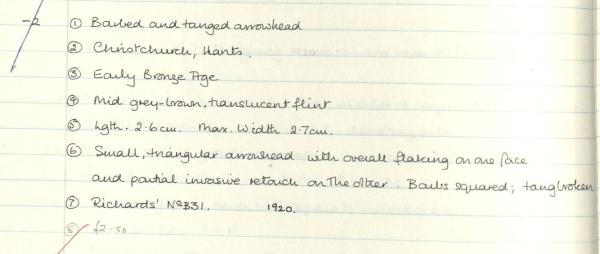 -2 ① Barbed and tanged arrowhead
② Christchurch, Hants.
③ Early Bronze Age
④ Mid grey-brown, translucent flint
⑤ Lgth. 2.6cm. Max. Width 2.7cm.
⑥ Small, triangular arrowhead with overall flaking on one face
and partial invasive retouch on the other. Barbs squared; tang broken
⑦ Richards' No B31. 1920.
⑧ £2-50